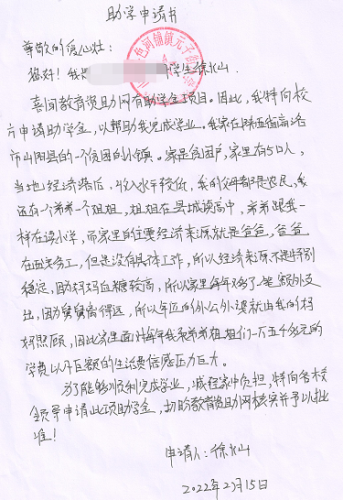 助学申请书
尊敬的
您好！我是 学生徐 山
喜闻教育资助网有助学金项目。因此，我特向校
方申请助学金，以帮助我完成学业。我家在陕西省商洛
市山阳县的一个贫困的小镇。家是贫困户，家里有5口人，
当地经济落后，收入水平较低，我的父母都是农民，我
还有一个弟弟一个姐姐，姐姐在县城读高中，弟弟跟我一
样在读小学，而家里的主要经济来源就是爸爸，爸爸
在西安务工，但是没有具体工作，所以经济来源不是特别
稳定，因妈妈血糖较高，所以家里每年又多了一笔额外支
出，因舅舅离得远，所以年迈的外公外婆就由我的妈
妈照顾，因此家里面对每年我和弟弟姐姐们一万五千多元的
学费以及巨额的生活费倍感压力巨大。
为了能够顺利完成学业，减轻家中负担，特向贵校
领导申请此项助学金，切盼教育资助网核实并予以批
准！
申请人：徐 山
2022年2月15日